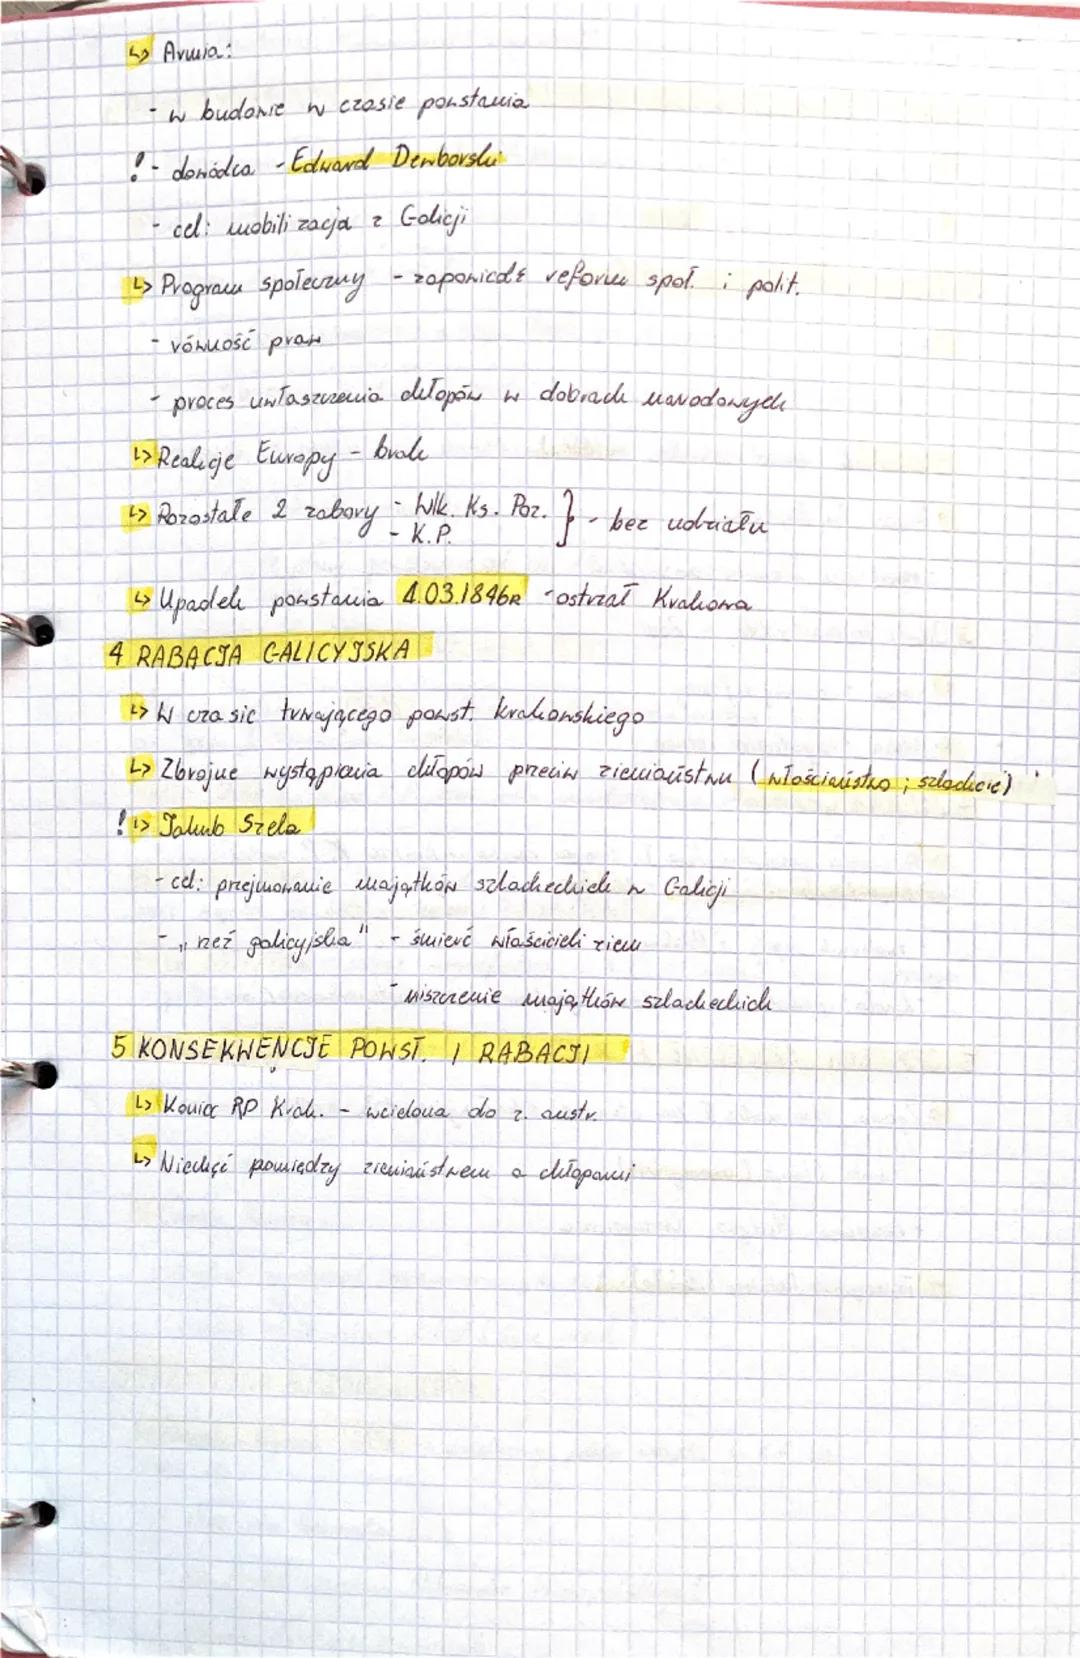 ↳ Armia:
- w budowie w czasie powstania
! - dowódca - Edward Dembowski
- cel: mobilizacja z Galicji
↳ Program społeczny - zapowiedź reform społ. i polit.
- równość praw
- proces uwłaszczenia chłopów w dobrach narodowych
↳ Reakcje Europy - brak
↳ Pozostałe 2 zabory - Wlk. Ks. Poz. } - bez udziału
- K.P.
↳ Upadek powstania 4.03.1846R - ostrzał Krakowa
4 RABACJA GALICYJSKA
↳ W czasie trwającego powst. krakowskiego
↳ Zbrojne wystąpienia chłopów przeciw ziemiaństwu (włościaństwo ; szlachcie)
! ↳ Jakub Szela
- cel: przejmowanie majątków szlacheckich w Galicji
- „rzeź galicyjska" - śmierć właścicieli ziem
- niszczenie majątków szlacheckich
5 KONSEKWENCJE POWST. I RABACJI
↳ Koniec RP Krak. - wcielona do z. austr.
↳ Niechęć pomiędzy ziemiaństwem a chłopami